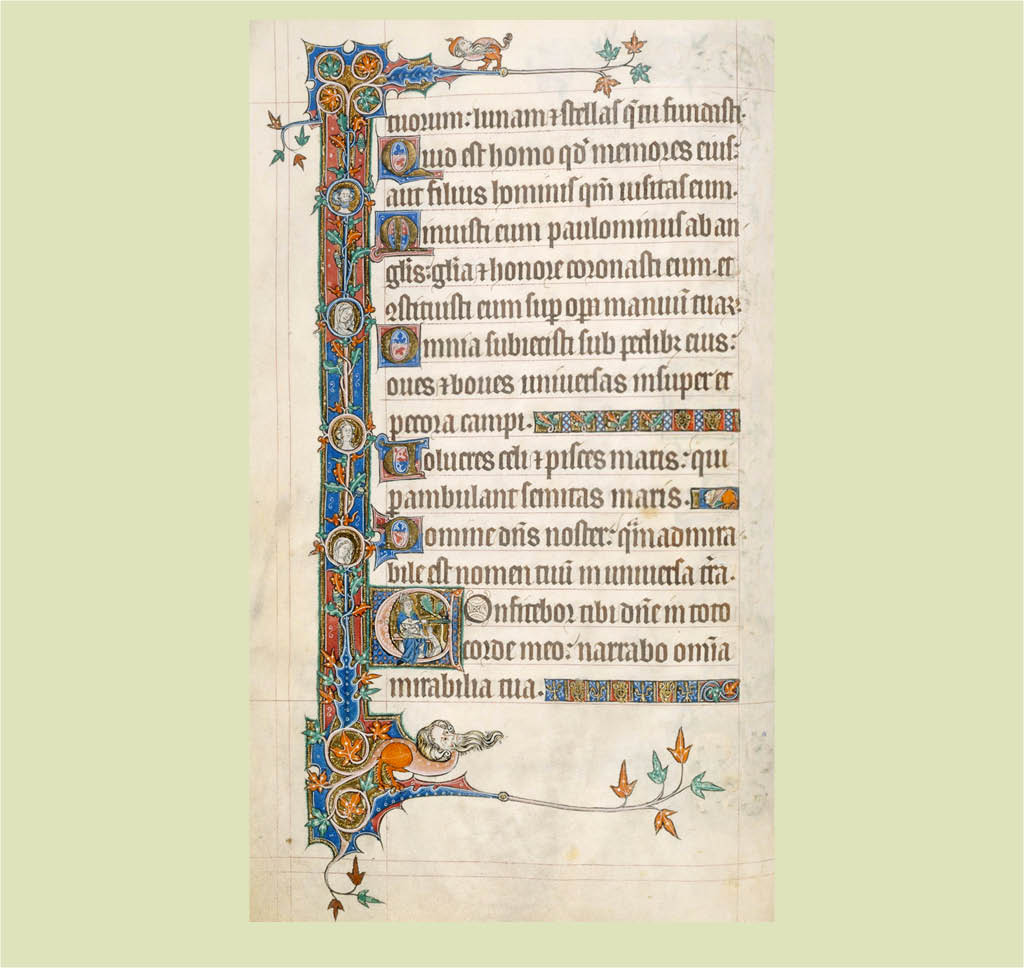 tuorum: lunam ⁊ stellas q̄ tu fundasti.
Quid est homo qd̕ memores eius:
aut filius hominis qm̄ uisitas eum.
Minuisti eum paulominus ab an
glis: gl̄ia ⁊ honore coronasti eum. et
ꝯstituisti eum sup̱ op̱a manuū tuaꝝ.
Omnia subiecisti sub pedibꝫ eius:
oues ⁊ boues uniuersas insuper et
pecora campi.
Uolucres celi ⁊ pisces maris: qui
ꝑambulant semitas maris.
Domine dn̄s noster: qm̄ admira
bile est nomen tuū in uniuersa t̄ra.
Confitebor tibi dn̄e in toto
corde meo: narrabo om̄ia
mirabilia tua.